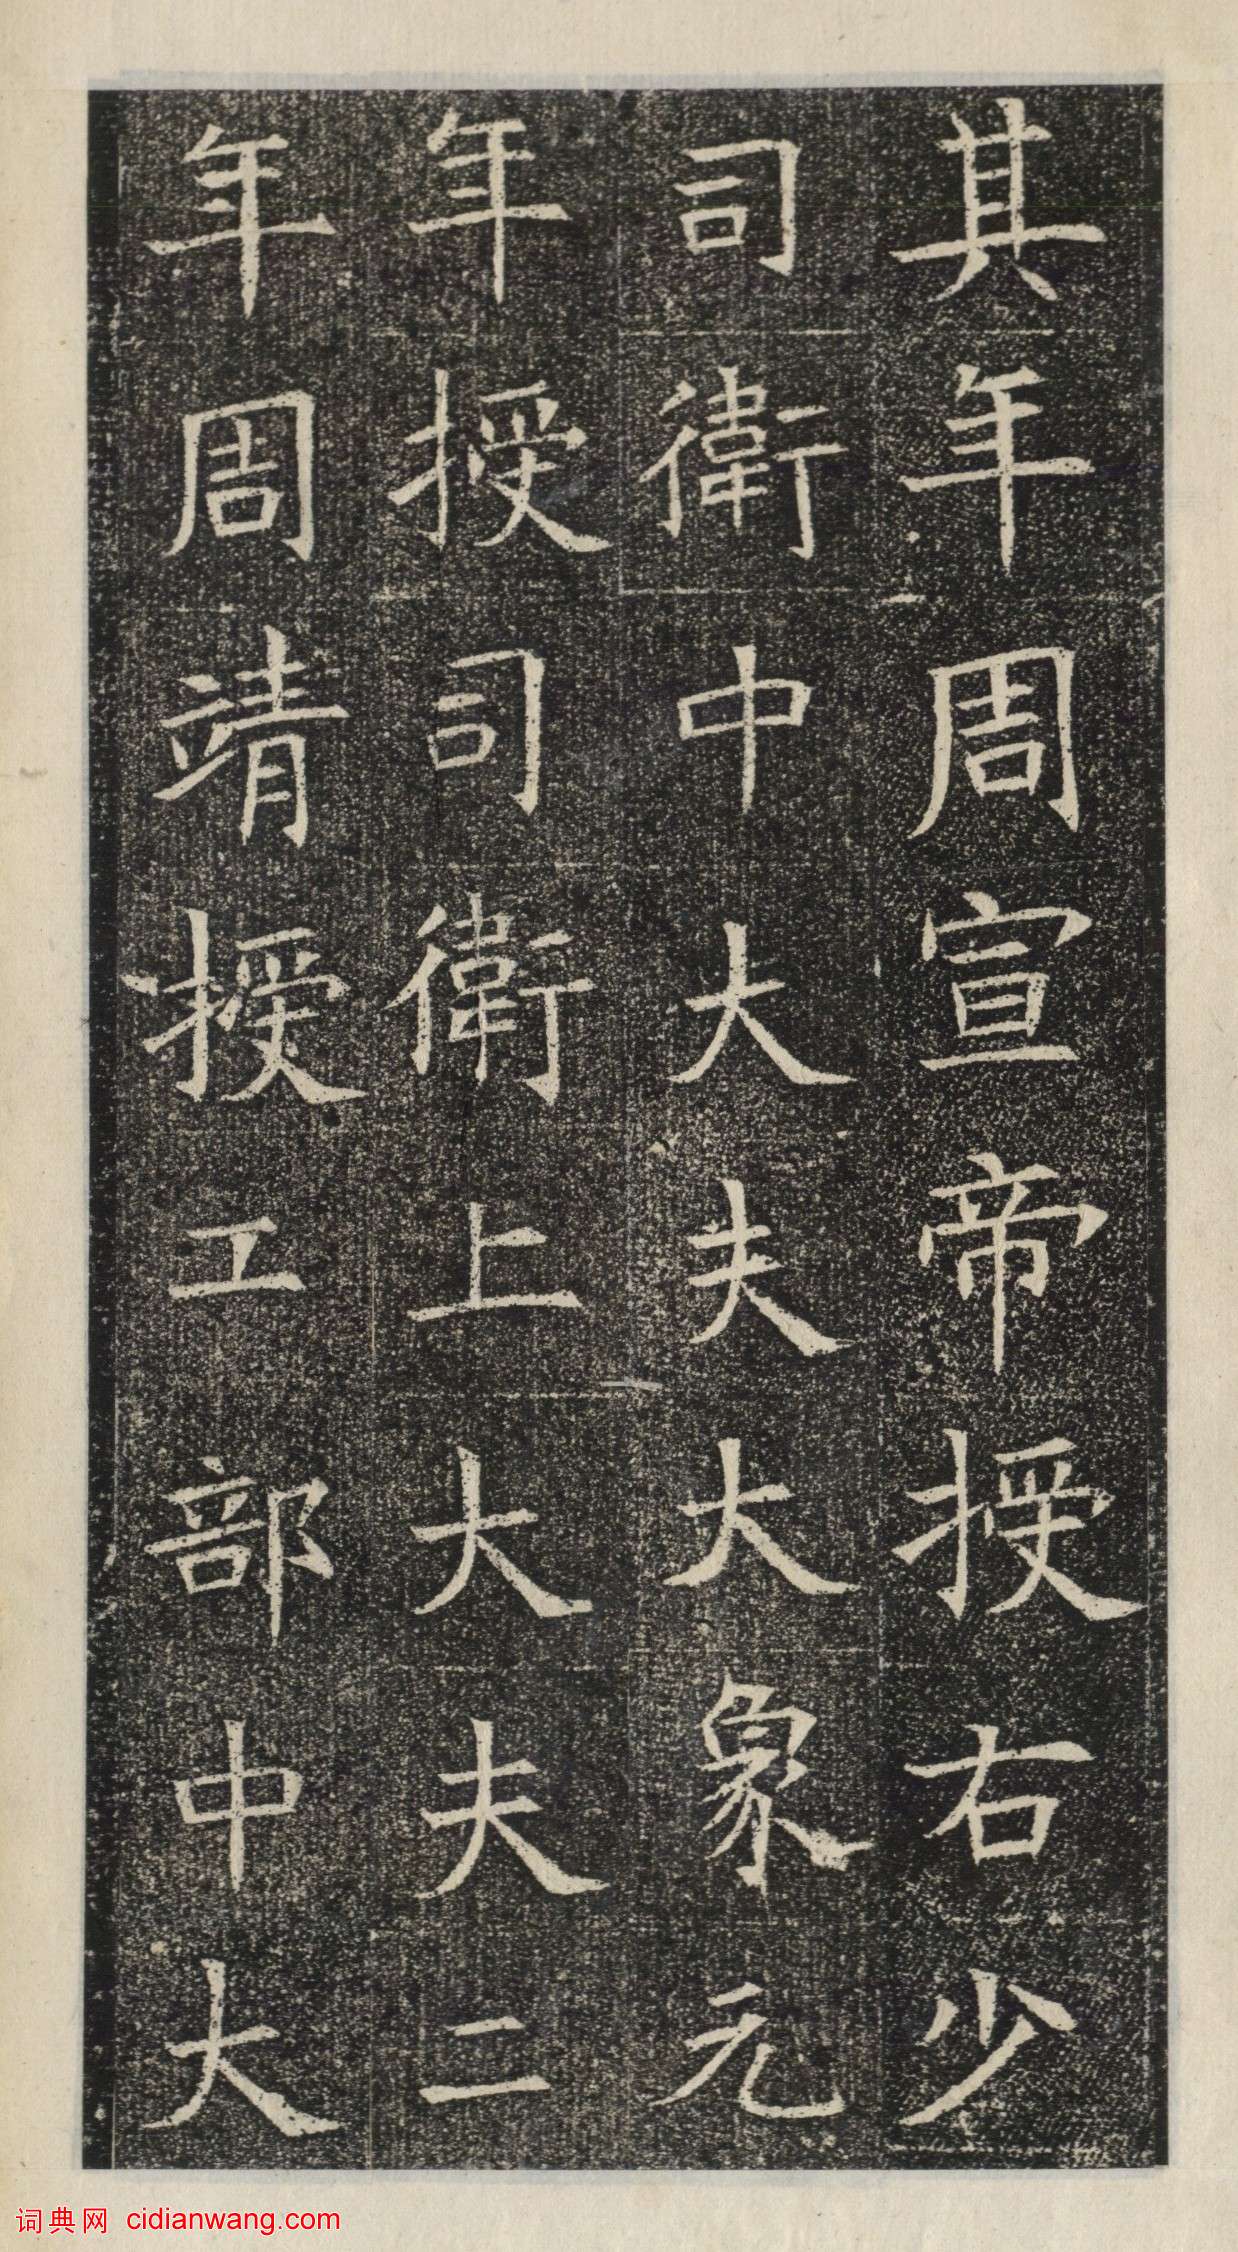 其年周宣帝授右少
司衛中大夫大象元
年授司衛上大夫二
年周靖授工部中大
词典网 cidianwang.com